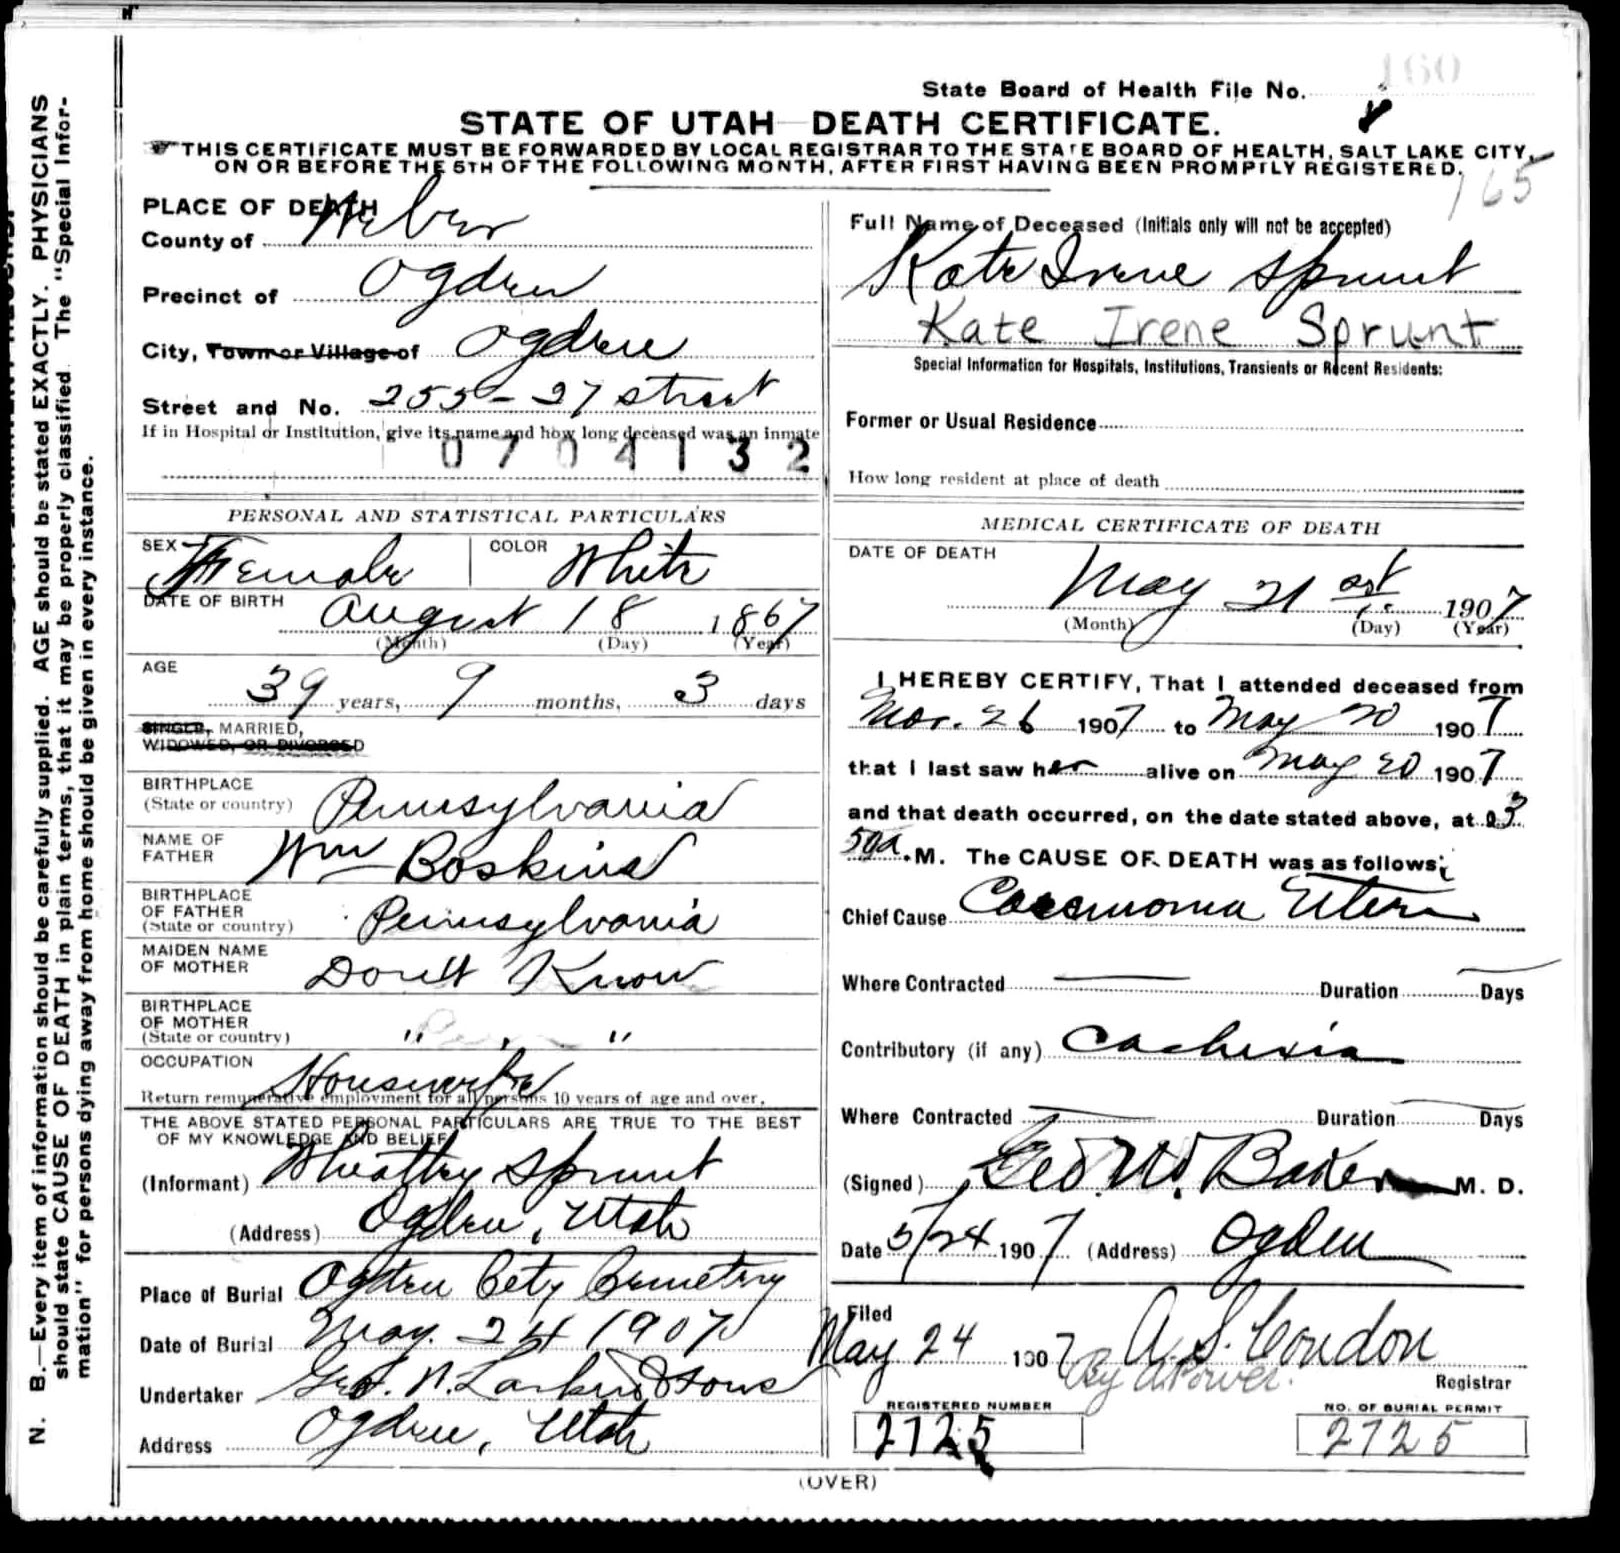 N. B.—Every item of information should be carefully supplied. AGE should be stated EXACTLY. PHYSICIANS
should state CAUSE OF DEATH in plain terms, that it may be properly classified. The "Special Infor-
mation" for persons dying away from home should be given in every instance.
State Board of Health File No. 160
STATE OF UTAH—DEATH CERTIFICATE.
THIS CERTIFICATE MUST BE FORWARDED BY LOCAL REGISTRAR TO THE STATE BOARD OF HEALTH, SALT LAKE CITY,
ON OR BEFORE THE 5TH OF THE FOLLOWING MONTH, AFTER FIRST HAVING BEEN PROMPTLY REGISTERED.
165
PLACE OF DEATH
County of Weber
Precinct of Ogden
City, Town or Village of Ogden
Street and No. 255 - 27 street
If in Hospital or Institution, give its name and how long deceased was an inmate
0704132
Full Name of Deceased (Initials only will not be accepted)
Kate Irene Sprunt
Kate Irene Sprunt
Special Information for Hospitals, Institutions, Transients or Recent Residents:
Former or Usual Residence
How long resident at place of death
PERSONAL AND STATISTICAL PARTICULARS
SEX Female COLOR White
DATE OF BIRTH August 18 1867
(Month) (Day) (Year)
AGE
39 years, 9 months, 3 days
SINGLE, MARRIED,
WIDOWED, OR DIVORCED
BIRTHPLACE
(State or country) Pennsylvania
NAME OF
FATHER Wm Boskins
BIRTHPLACE
OF FATHER
(State or country) Pennsylvania
MAIDEN NAME
OF MOTHER Don't Know
BIRTHPLACE
OF MOTHER
(State or country) " "
OCCUPATION
Housewife
Return remunerative employment for all persons 10 years of age and over.
THE ABOVE STATED PERSONAL PARTICULARS ARE TRUE TO THE BEST
OF MY KNOWLEDGE AND BELIEF
(Informant) Wheatley Sprunt
(Address) Ogden, Utah
Place of Burial Ogden City Cemetery
Date of Burial May. 24 1907
Undertaker Geo. W. Larkin & Sons
Address Ogden, Utah
MEDICAL CERTIFICATE OF DEATH
DATE OF DEATH
May 21 st. 1907
(Month) (Day) (Year)
I HEREBY CERTIFY, That I attended deceased from
Mar. 26 1907 to May 20 1907
that I last saw her alive on May 20 1907
and that death occurred, on the date stated above, at 3
50 a.M. The CAUSE OF DEATH was as follows:
Chief Cause Carcinoma Uteri
Where Contracted Duration Days
Contributory (if any) Cachexia
Where Contracted Duration Days
(Signed) Geo. W. Baker M. D.
Date 5/24 1907 (Address) Ogden
Filed
May 24 1907 A. S. Condon
By A Power.
Registrar
REGISTERED NUMBER
2725
NO. OF BURIAL PERMIT
2725
(OVER)